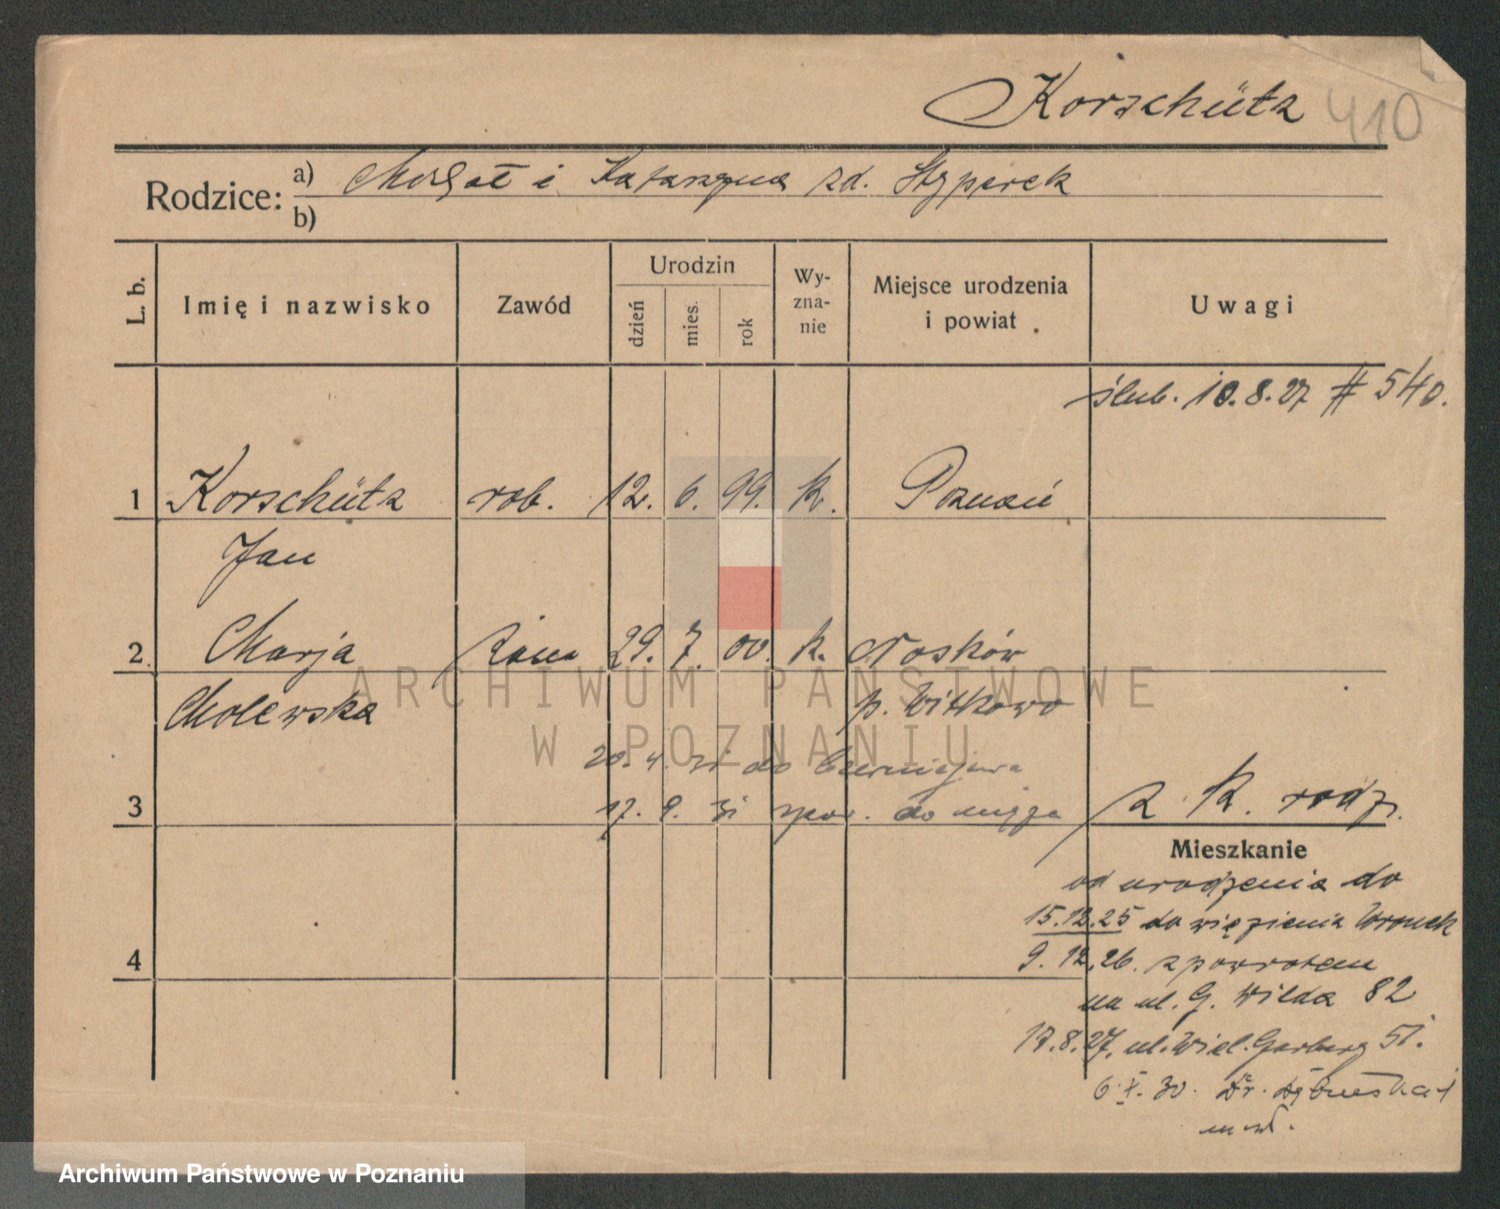 Korschütz 410
Rodzice: a) Michał i Katarzyna zd. Styperek
b)
L. b. Imię i nazwisko Zawód Urodzin dzień mies. rok Wy-zna-nie Miejsce urodzenia i powiat Uwagi
ślub. 10.8.27 # 540.
1 Korschütz rob. 12. 6. 99. k. Poznań
Jan
2. Marja żona 29. 7. 00. k. Nosków
Molewska p. Witkowo
ARCHIWUM PAŃSTWOWE
W POZNANIU
20. 4. 31 do
3 17. 9. 31 spow. do męża z k. rodz.
Mieszkanie
od urodzenia do
15.12.25 do więzienia Wronek
4 9. 12. 26. z powrotem
na ul. G. Wilda 82
17.8.27. ul. Wiel. Garbary 51.
6 X. 30. Dr. Dębińska 1
Archiwum Państwowe w Poznaniu